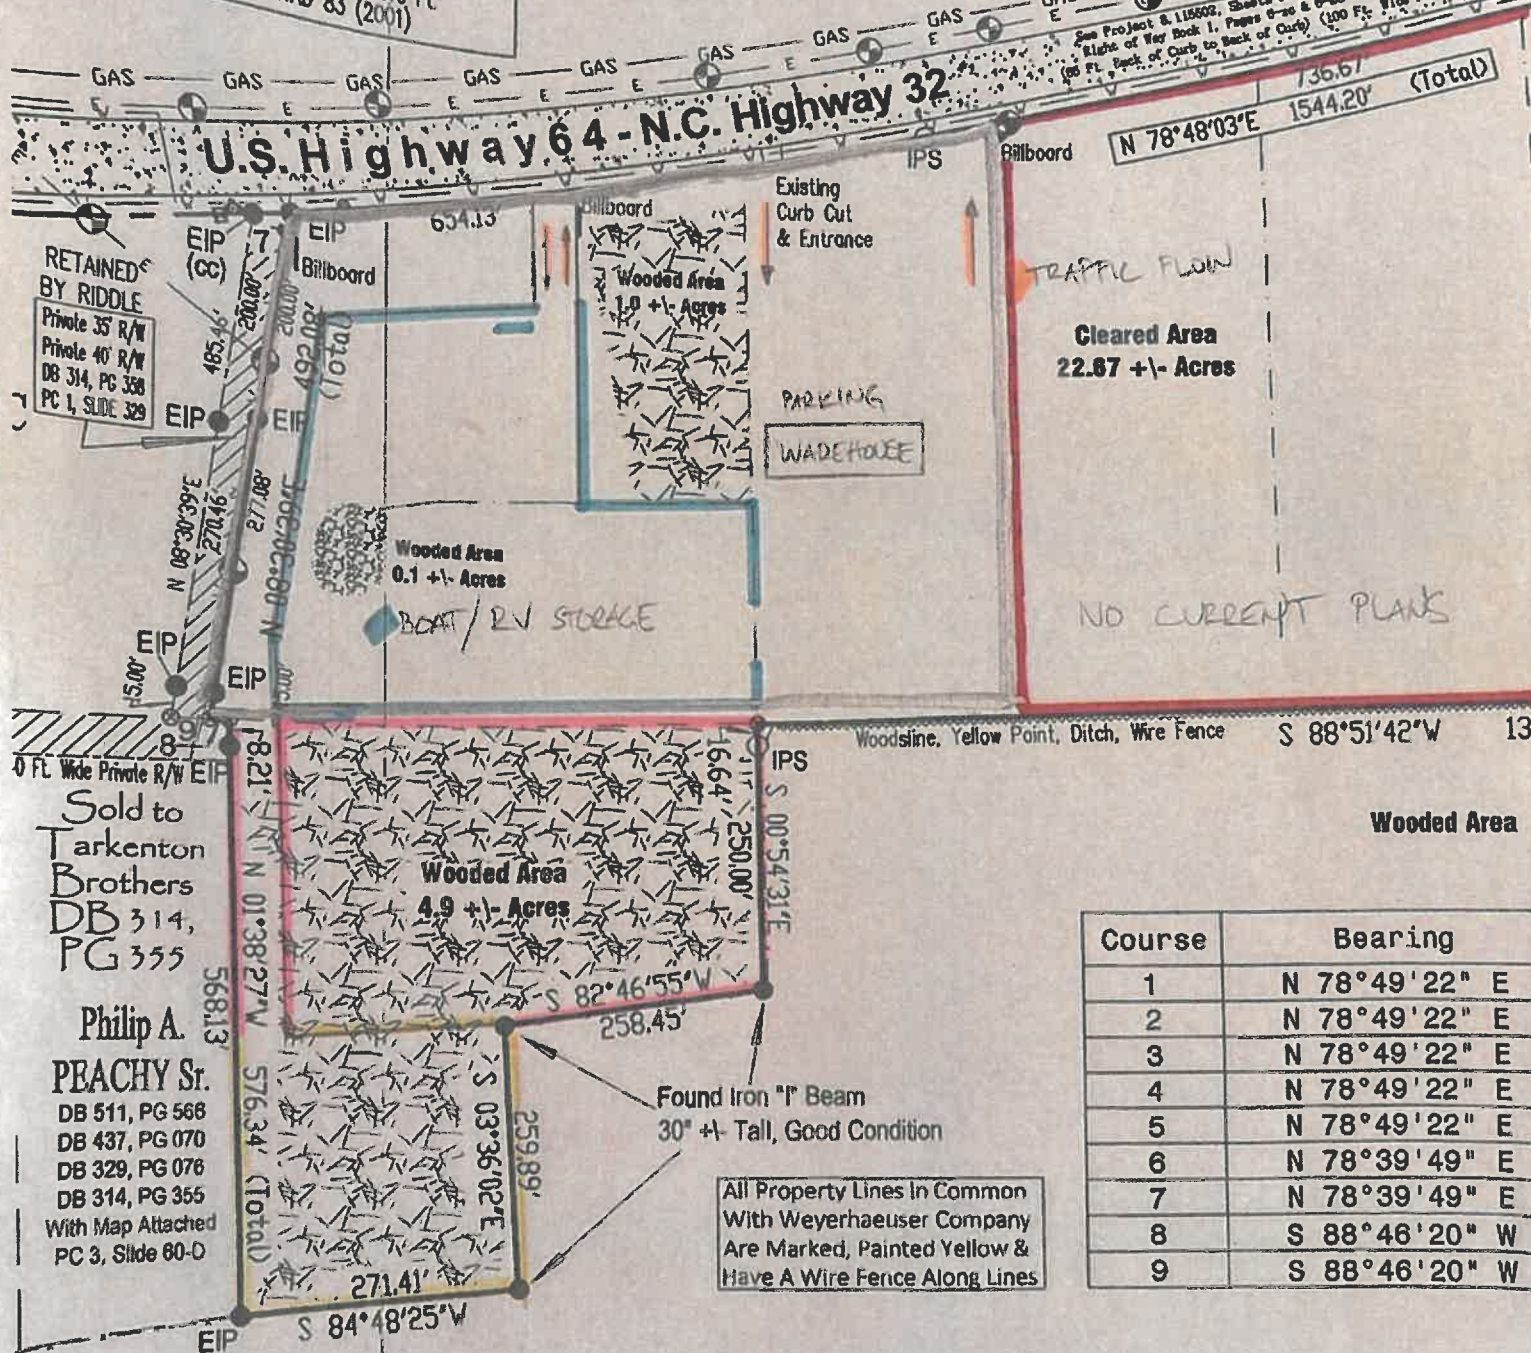 83 (2001)
GAS GAS GAS GAS GAS GAS GAS GAS
E E E E E E E
See Project 8.115602, Sheets
Right of Way Book 1, Pages
(66 Ft. Back of Curb to Back of Curb) (100 Ft. Wide
U.S. Highway 64 - N.C. Highway 32
736.67'
N 78°48'03"E 1544.20' (Total)
IPS
Billboard
Existing
Curb Cut
& Entrance
Billboard
654.13'
EIP
(CC)
7
EIP
Billboard
RETAINED
BY RIDDLE
Private 35' R/W
Private 40' R/W
DB 314, PG 358
PC 1, SLIDE 329
485.46'
200.00'
200.00'
492.08'
(Total)
EIP
EIP
Wooded Area
1.0 +\- Acres
TRAFFIC FLOW
Cleared Area
22.67 +\- Acres
PARKING
WAREHOUSE
N 08°30'39"E
270.46
277.08'
N 08°30'39"E
Wooded Area
0.1 +\- Acres
BOAT / RV STORAGE
NO CURRENT PLANS
EIP
15.00'
EIP
9
7
8
EIP
0 Ft. Wide Private R/W
Woodsline, Yellow Point, Ditch, Wire Fence
S 88°51'42"W
13
IPS
Wooded Area
Sold to
Tarkenton
Brothers
DB 314,
PG 355
8.21'
16.64'
250.00'
S 00°54'31"E
Wooded Area
4.9 +\- Acres
N 01°38'27"W
568.13'
576.34' (Total)
S 82°46'55"W
258.45'
Philip A.
PEACHY Sr.
DB 511, PG 566
DB 437, PG 070
DB 329, PG 076
DB 314, PG 355
With Map Attached
PC 3, Slide 60-D
S 03°36'02"E
259.89'
Found Iron "I" Beam
30" +\- Tall, Good Condition
All Property Lines In Common
With Weyerhaeuser Company
Are Marked, Painted Yellow &
Have A Wire Fence Along Lines
271.41'
S 84°48'25"W
EIP
Course Bearing
1 N 78°49'22" E
2 N 78°49'22" E
3 N 78°49'22" E
4 N 78°49'22" E
5 N 78°49'22" E
6 N 78°39'49" E
7 N 78°39'49" E
8 S 88°46'20" W
9 S 88°46'20" W